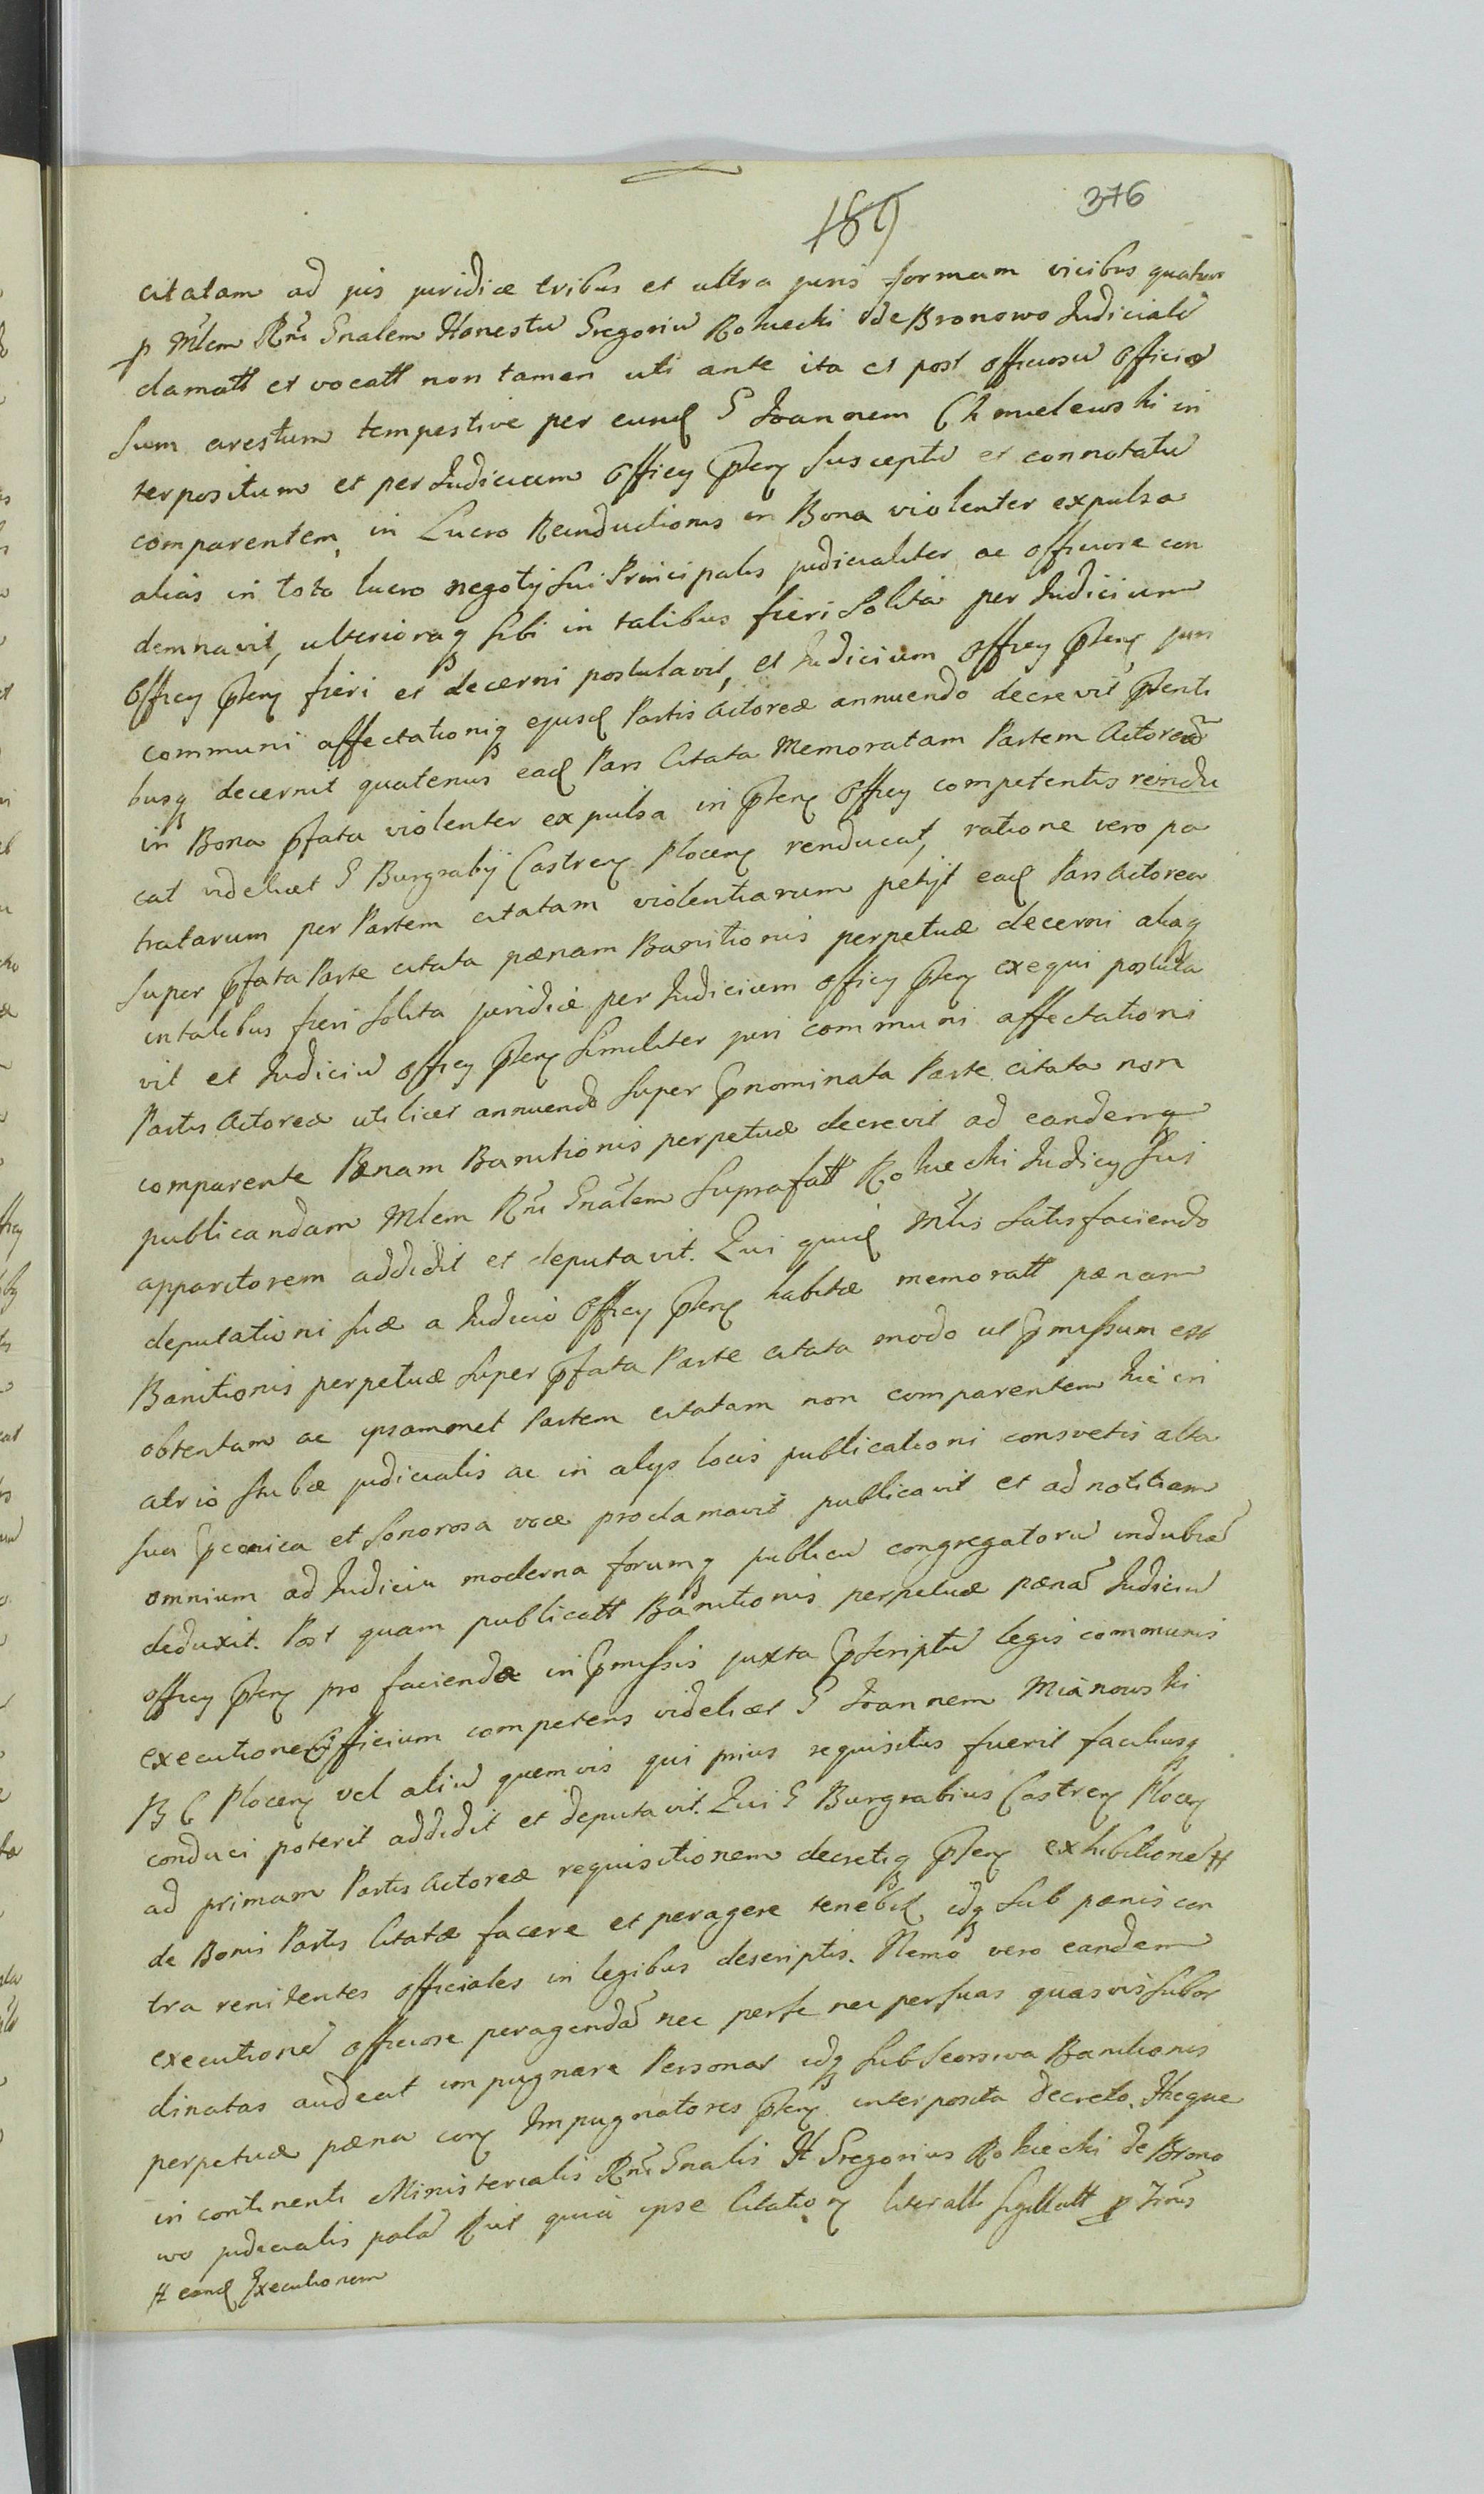 376
citatam ad jus juridice tribus et ultra juris formam vicibus quatuor
p Mlem Rni Gnalem Honestu Gregoriu Rokicki de Bronowo Judiciali
clamatt et vocatt non tamen uti ante ita et post officiosu Officio
sum arestum tempestive per eund G Joannem Chmielewski in
terpositum et per Judicium Officy pten susceptu et connotatu
comparentem, in Lucro Reinductionis in Bona violenter expulsa
alias in toto lucro negotij sui Principalis judicialiter ac officiose con
demnavit, ulterioraq sibi in talibus fieri solita per Judicium
Officy pten fieri et decerni postulavit, et Judicium Officy pten juri
communi affectationiq ejusd Partis Actoreæ annuendo decrevit ptenti
busq decernit quatenus ead Pars Citata Memoratam Partem Actorea
in Bona pfata violenter expulsa in pten Officy competentis reindu
cat videlicet G Burgrabij Castren Plocen renducat, ratione vero pa
tratarum per Partem citatam violentiarum petijt ead Pars Actorea
super pfata Parte citata pænam Banitionis perpetuæ decerni aliaq
in talibus fieri solita juridice per Judicium officy pten exequi postula
vit et Judiciu officy pten similiter juri communi affectationi
Partis Actoreæ utilicet annuendo super pnominata Parte citata non
comparente Pænam Banitionis perpetuæ decrevit ad eandemq
publicandam Mlem Rni Gnalem suprafatt Rokicki Judicy sui
apparitorem addidit et deputavit. Qui quid Mlis satisfaciendo
deputationi suæ a Judicio Officy pten habitæ memoratt pænam
Banitionis perpetuæ super pfata Parte citata modo ut pmissum est
obtentam ac ipsammet Partem citatam non comparentem hic in
atrio stubæ judicialis ac in alys locis publicationi consvetis alta
sua pconica et sonorosa voce proclamavit publicavit et ad notitiam
omnium ad Judicia moderna forumq publicu congregatoru indubia
deduxit. Post quam publicatt Banitionis perpetuæ pæna Judiciu
officy pten pro faciendæ in pmissis juxta pscriptu legis communis
executione Officium competens videlicet G Joannem Mianowski
B C Plocen vel aliu quemvis qui prius requisitus fuerit faciliusq
conduci poterit addidit et deputavit. Qui G Burgrabius Castren Plocen
ad primam Partis Actoreæ requisitionem decretiq pten exhibitione #
de Bonis Partis Citatæ facere et peragere tenebit idq sub pænis con
tra renitentes officiales in legibus descriptis. Nemo vero eandem
executione officiose peragenda nec per se nec per suas quasvis subor
dinatas audeat impugnare Personas idq sub seorsiva Banitionis
perpetuæ pæna con Impugnatores pten interposita decreto. Ibique
in continenti Ministerialis Rni Gnalis H Gregorius Rokicki de Brono
wo judicialis pala Rut quia ipse Citation literatt sigillatt
# eand Executionem